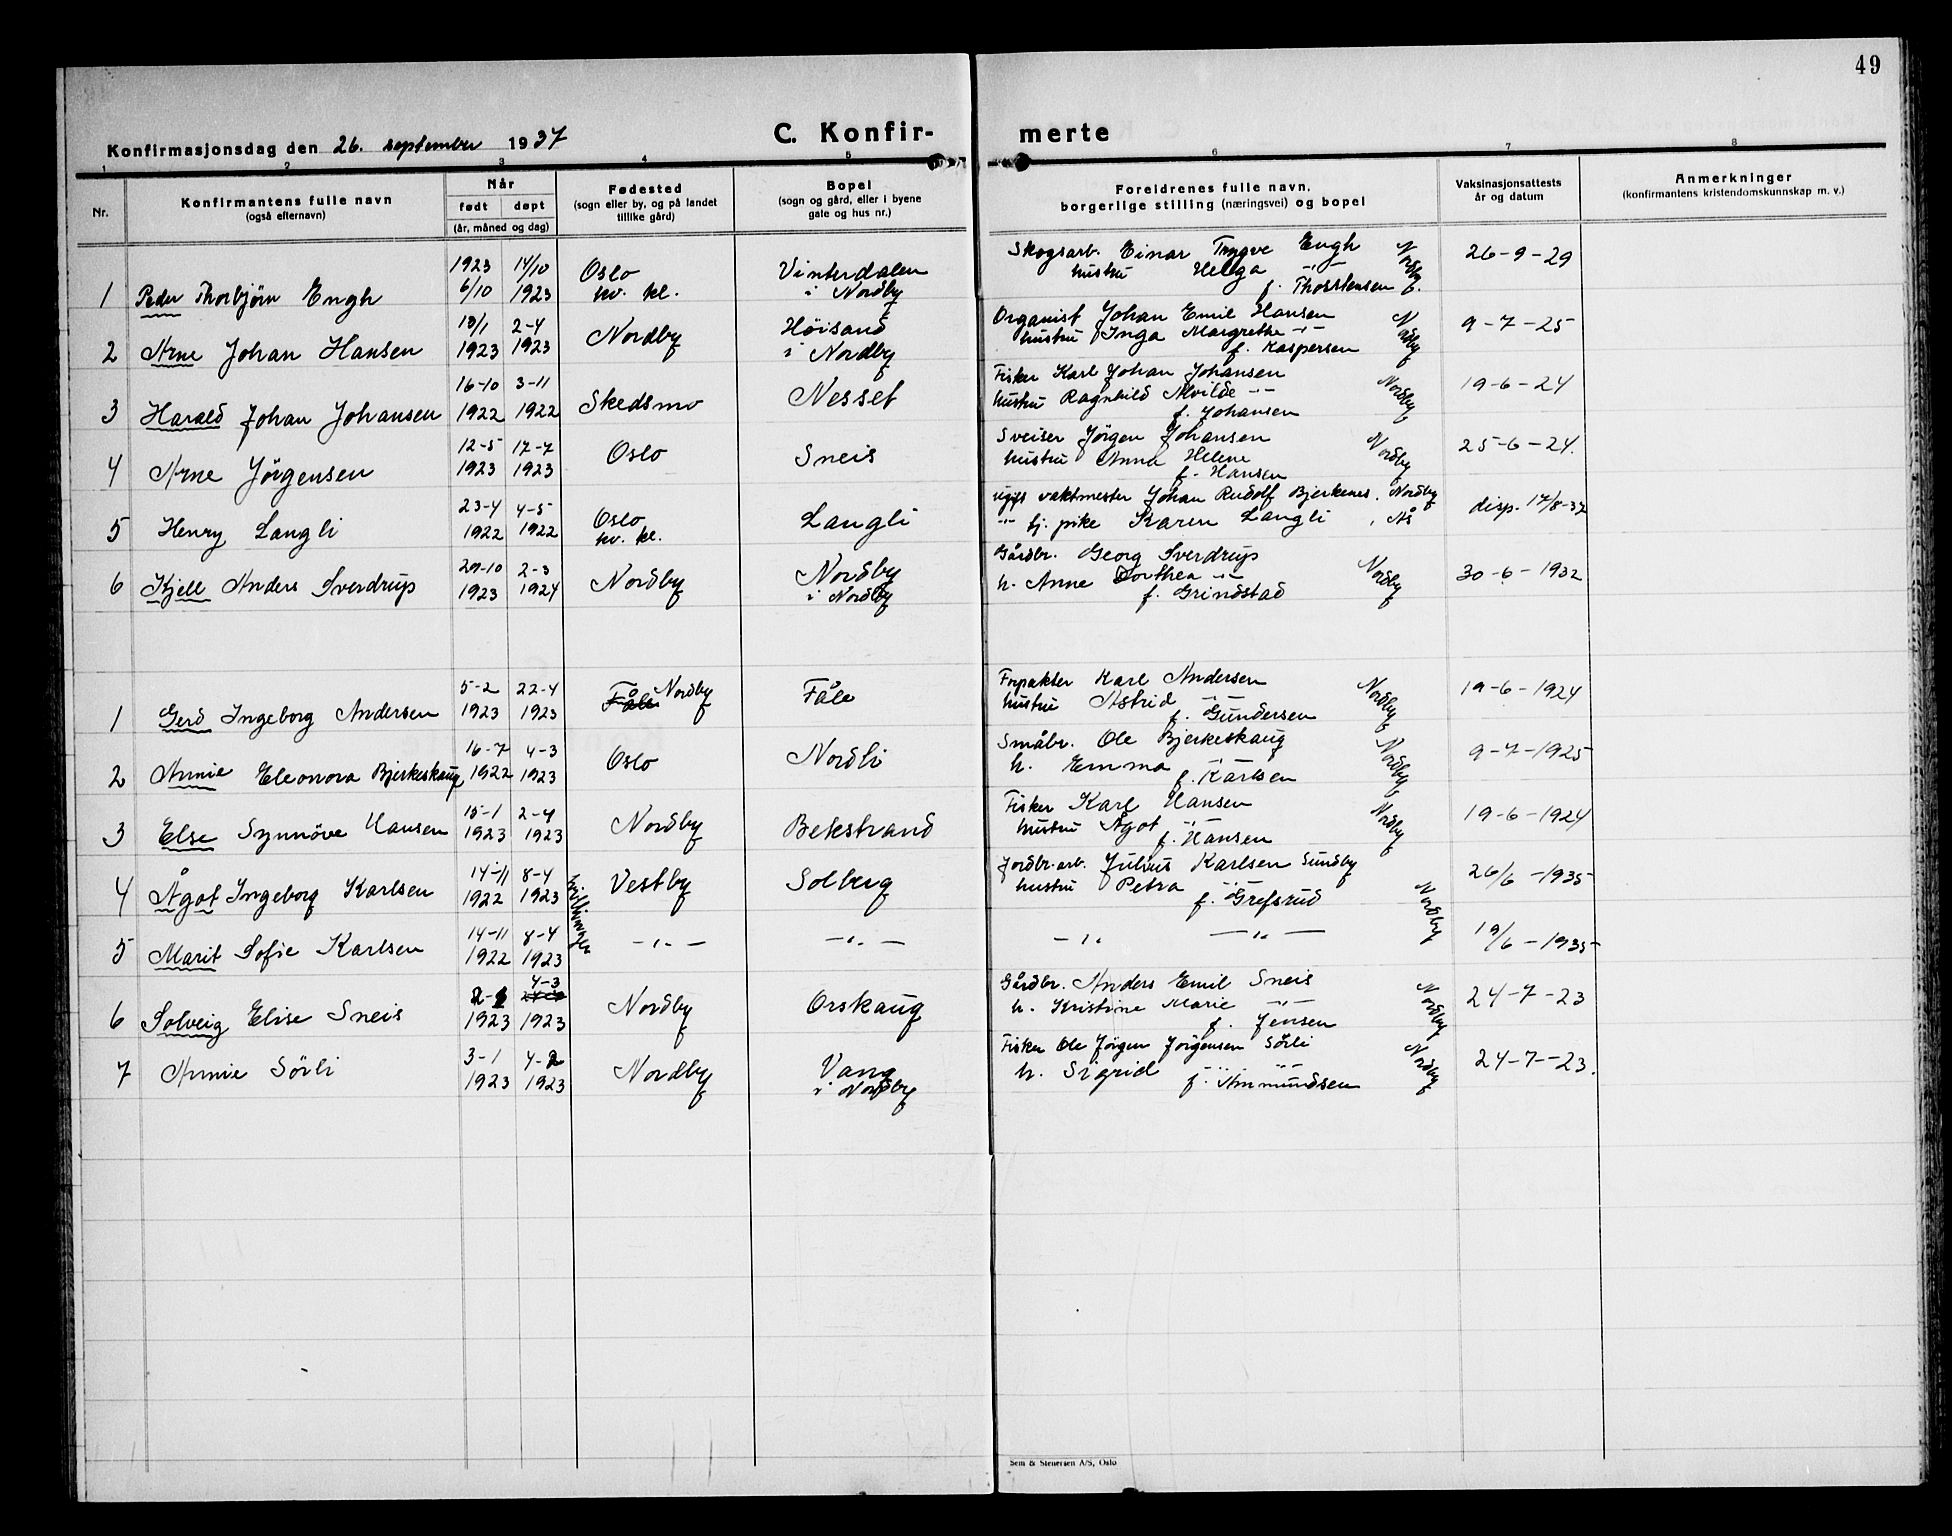 49
C. Konfir- merte
Konfirmasjonsdag den 26. september 1937
1 2 3 4 5 6 7 8
Nr.
Konfirmantens fulle navn
(også efternavn)
Når
født døpt
(år, måned og dag)
Fødested
(sogn eller by, og på landet
tillike gård)
Bopel
(sogn og gård, eller i byene
gate og hus nr.)
Foreldrenes fulle navn,
borgerlige stilling (næringsvei) og bopel
Vaksinasjonsattests
år og datum
Anmerkninger
(konfirmantens kristendomskunnskap m. v.)
1923 14/10 Oslo Vinterdalen Skogsarb. Einar Trygve Engh Nordby 26-9-29
1 Peder Thorbjørn Engh 6/10 1923 kv. kl. i Nordby hustru Helga -"- f. Thorstensen
10/1 2-4 Nordby Høisand Organist Johan Emil Hansen Nordby 9-7-25
2 Arne Johan Hansen 1923 1923 i Nordby hustru Inga Margrethe -"-
f. Kaspersen
16-10 3-11 Skedsmo Nesset Fisker Karl Johan Johansen Nordby 19-6-24
3 Harald Johan Johansen 1922 1922 hustru Ragnhild Alvilde -"-
f. Johansen
12-5 17-7 Oslo Sneis Sveiser Jörgen Johansen Nordby 25-6-24.
4 Arne Jörgensen 1923 1923 hustru Anna Helene
f. Hansen
23-4 4-5 Oslo Langli ugift vaktmester Johan Rudolf Bjerkenes, Nordby disp. 17/8-37
5 Henry Langli 1922 1922 kv. kl. -"- tj. pike Karen Langli, Ås
29-10 2-3 Nordby Nordby Gårdbr. Georg Sverdrup Nordby 30-6-1932
6 Kjell Anders Sverdrup 1923 1924 i Nordby h. Anne Dorthea -"-
f. Grindstad
5-2 22-4 Fåle Nordby Fåle Forpakter Karl Andersen Nordby 19-6-1924
1 Gerd Ingeborg Andersen 1923 1923 hustru Astrid -"-
f. Gundersen
16-7 4-3 Oslo Nordli Småbr. Ole Bjerkeskaug Nordby 9-7-1925
2 Annie Eleonora Bjerkeskaug 1922 1923 h. Emma -"-
f. Karlsen
15-1 2-4 Nordby Bekstrand Fisker Karl Hansen Nordby 19-6-1924
3 Else Synnöve Hansen 1923 1923 hustru Ågot -"-
f. Hansen
14-11 8-4 tvillinger Vestby Solberg Jordbr.arb. Julius Karlsen Sundby Nordby 26/6-1935
4 Ågot Ingeborg Karlsen 1922 1923 hustru Petra -"-
f. Grefsrud
14-11 8-4 -"- -"- -"- -"- 19/6-1935
5 Marit Sofie Karlsen 1922 1923
2-1 4-3 Nordby Orskaug Gårdbr. Anders Emil Sneis Nordby 24-7-23
6 Solveig Elise Sneis 1923 1923 h. Kristine Marie -"-
f. Jensen
3-1 4-2 Nordby Vang Fisker Ole Jørgen Jørgensen Sørli Nordby 24-7-23.
7 Annie Sörli 1923 1923 i Nordby h. Sigrid -"-
f. Ammundsen
Sem & Stenersen A/S, Oslo